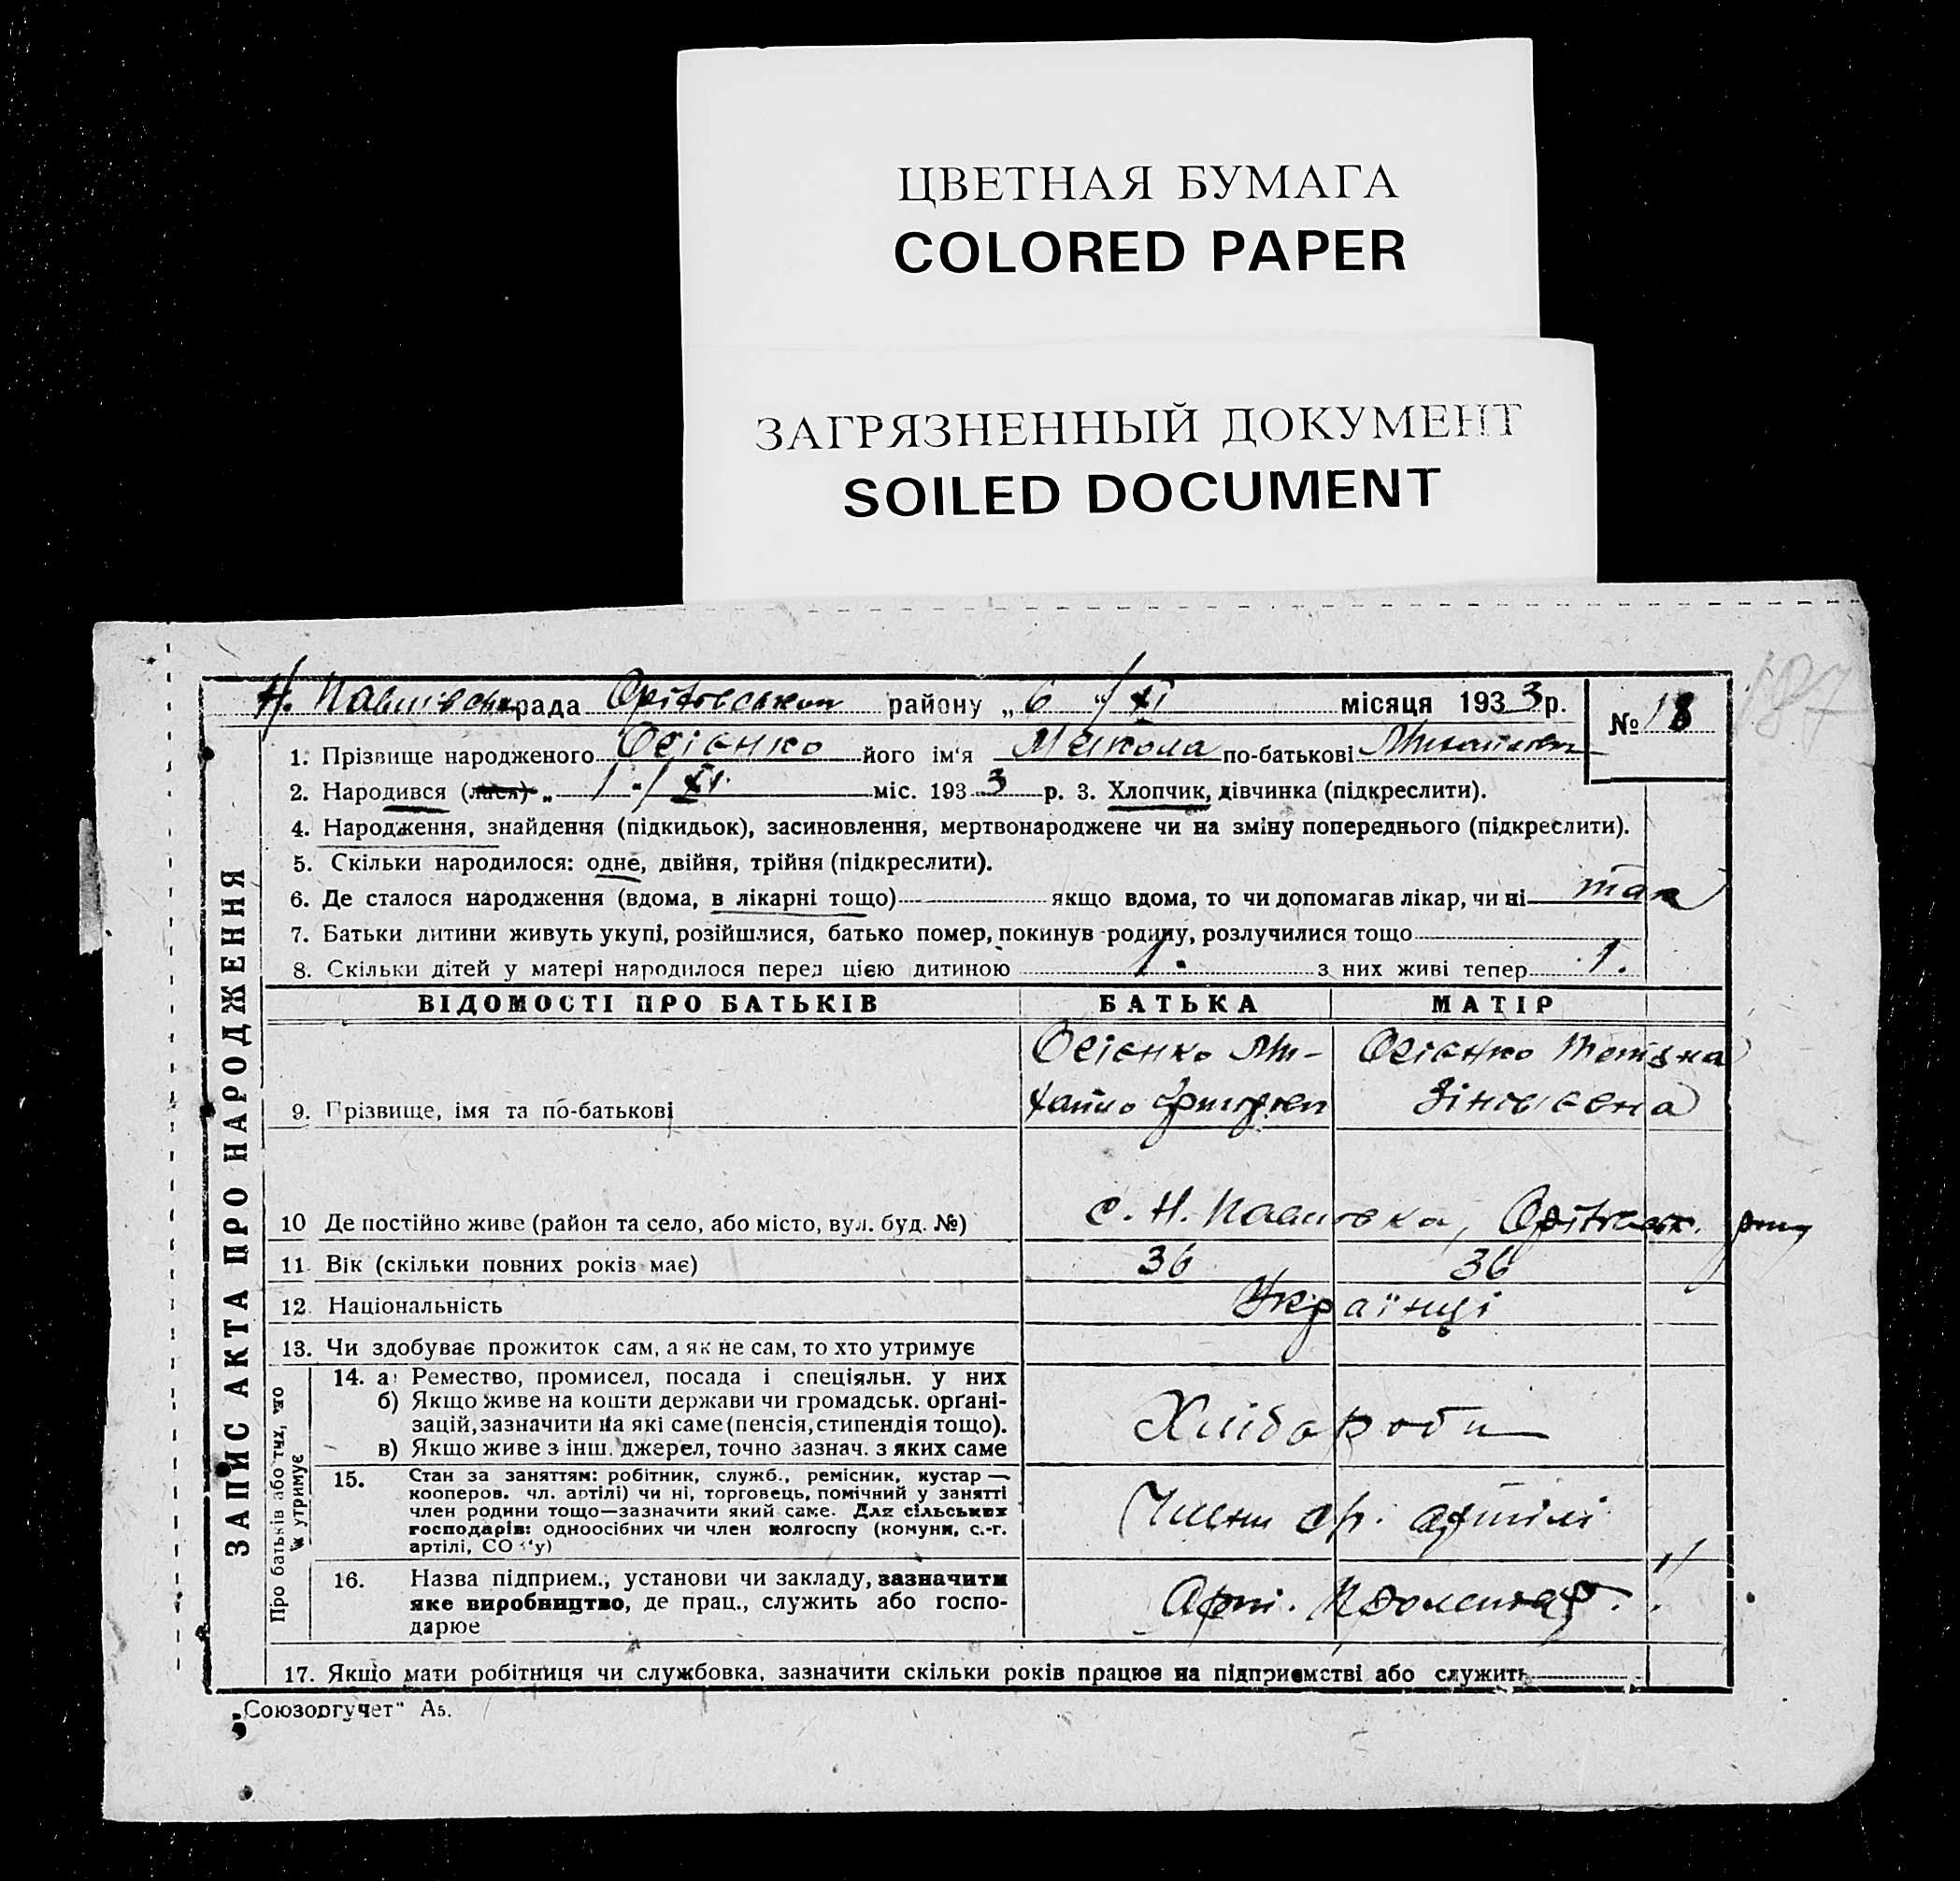 ЦВЕТНАЯ БУМАГА
COLORED PAPER
ЗАГРЯЗНЕННЫЙ ДОКУМЕНТ
SOILED DOCUMENT
187
рада районy „ 6 “ / XI місяця 1933 р. № 18
1. Прізвище народженого Осієнко його ім‘я Микола по-батькові
2. Народився (лася) „ 1 “ / XI міс. 1933 р. 3. Хлопчик, дівчинка (підкреслити).
4. Народження, знайдення (підкидьок), засиновлення, мертвонароджене чи на зміну попереднього (підкреслити).
5. Скільки народилося: одне, двійня, трійня (підкреслити).
6. Де сталося народження (вдома, в лікарні тощо) якщо вдома, то чи допомагав лікар, чи ні так
7. Батьки дитини живуть укупі, розійшлися, батько помер, покинув родину, розлучилися тощо
8. Скільки дітей у матері народилося перед цією дитиною 1. з них живі тепер 1.
ЗАПИС АКТА ПРО НАРОДЖЕННЯ
ВІДОМОСТІ ПРО БАТЬКІВ БАТЬКА МАТІР
Осієнко Ми- Осієнко Тетяна
9. Прізвище, імя та по-батькові хайло
10 Де постійно живе (район та село, або місто, вул. буд. №) с. Н.
11. Вік (скільки повних років має) 36 36
12. Національність Українці
13. Чи здобуває прожиток сам, а як не сам, то хто утримує
Про батьків або тих, що
їх утримує
14. а) Ремество, промисел, посада і спеціяльн. у них
б) Якщо живе на кошти держави чи громадськ. орґані-
зацій, зазначити на які саме (пенсія, стипендія тощо).
в) Якщо живе з інш. джерел, точно зазнач. з яких саме
Хлібороби
15. Стан за заняттям: робітник, служб., ремісник, кустар —
кооперов. чл. артілі) чи ні, торговець, помічний у занятті
член родини тощо—зазначити який саме. Для сільських
господарів: одноосібних чи член колгоспу (комуни, с.-г.
артілі, СОЗ‘у)
Члени ср. артілі
16. Назва підприєм., установи чи закладу, зазначити
яке виробництво, де прац., служить або госпо-
дарює
Арт. Пролетар.
17. Якщо мати робітниця чи службовка, зазначити скільки років працює на підприємстві або служить
„Союзоргучет“ А5.